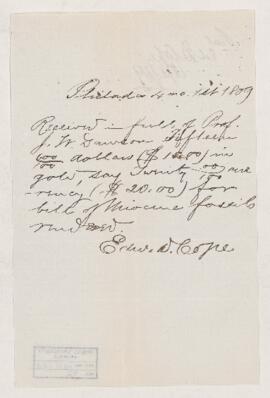 Philada 4 mo. 1st 1869
Received in full, of Prof.
J. W. Dawson Fifteen
00/100 dollars ($ 15.00) in
gold, say Twenty 00/100 cur
rency ($ 20.00) for
bill of Miocene fossils
rendered.
Edw. D. Cope